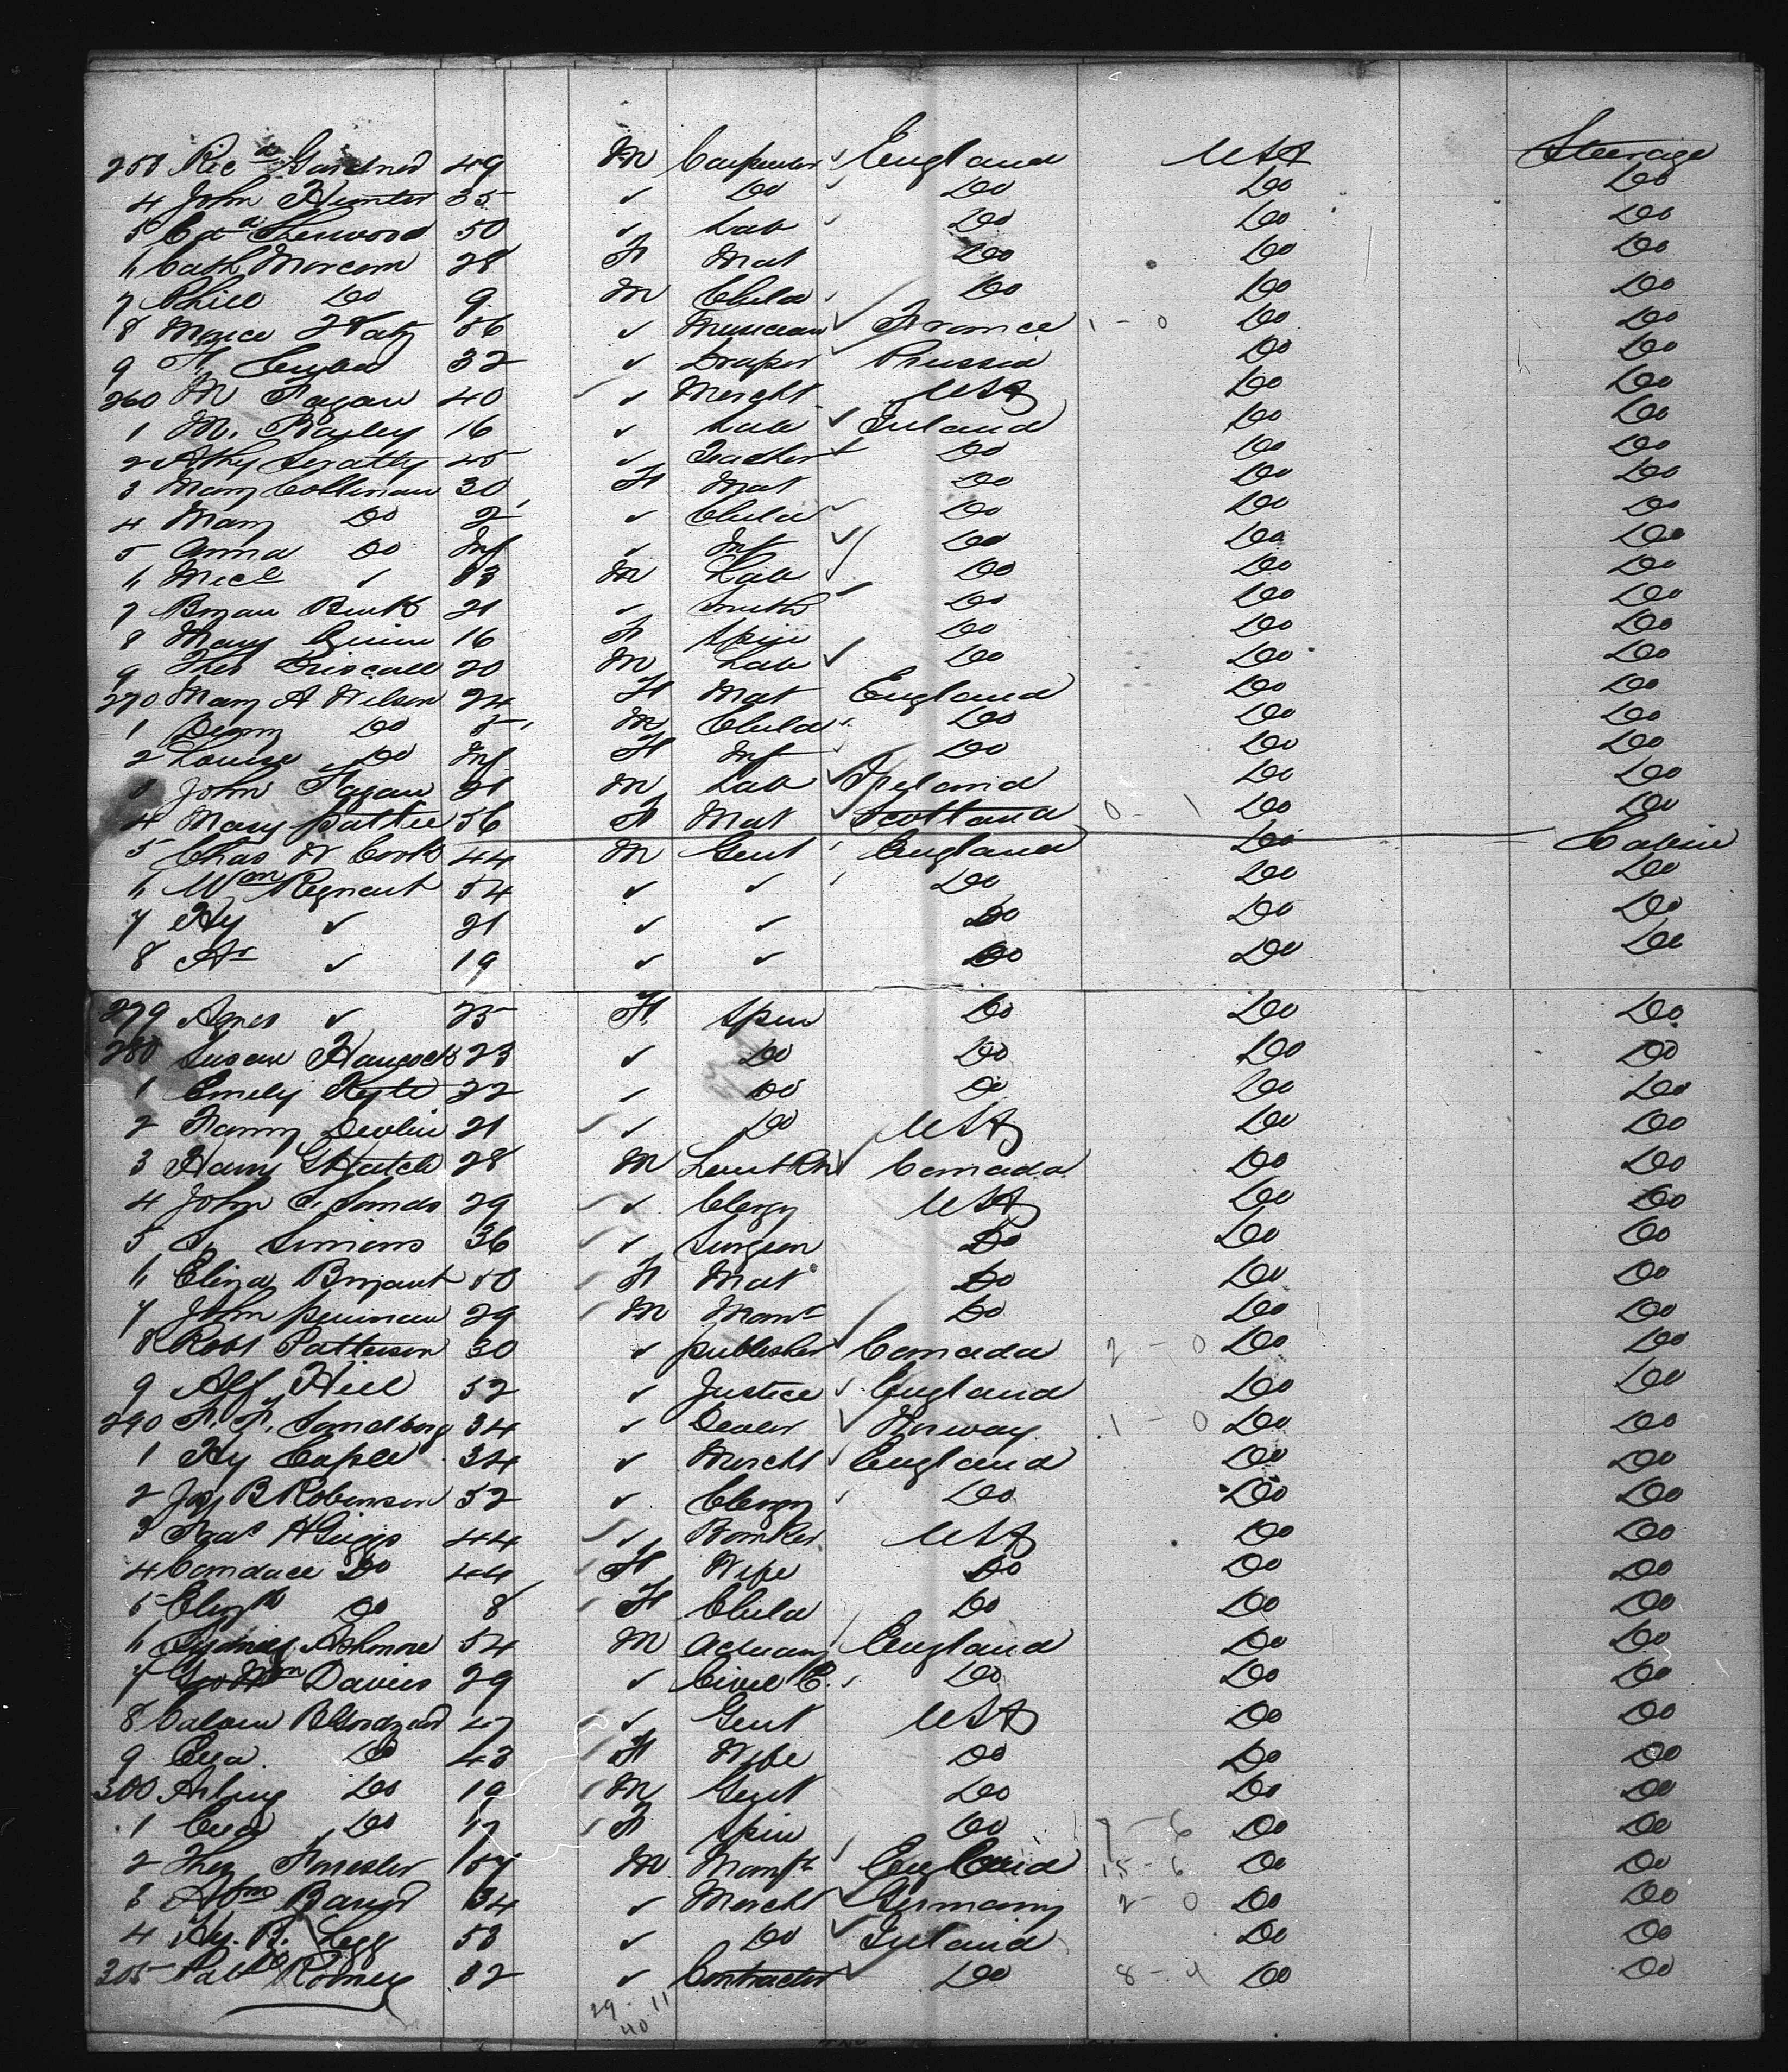 253 Ricd Gardner 49 M Carpenter England USA Steerage
4 John Hunter 35 ✓ Do Do Do Do
5 Sherwood 50 ✓ Lab Do Do Do
6 Cath Morcom 28 F Mat Do Do Do
7 Phill Do 9 M Child Do Do Do
8 56 ✓ Musician France 1 - 0 Do Do
9 32 ✓ Draper Prussia Do Do
260 M Fagan 40 ✓ Mercht USA Do Do
1 M. Bagley 16 ✓ Lab Ireland Do Do
2 45 ✓ Teacher Do Do Do
3 Mary Collinan 30 F Mat Do Do Do
4 Mary Do 2 ✓ Child Do Do Do
5 Anna Do Inf ✓ Inf Do Do Do
6 Micl ✓ 33 M Lab Do Do Do
7 Bryan Burk 21 ✓ Smith Do Do Do
8 Mary Quinn 16 F Spin Do Do Do
9 Thos Driscoll 20 M Lab Do Do Do
270 Mary A Wilson 24 F Mat England Do Do
1 Do 5 M Child Do Do Do
2 Louisa Do Inf F Inf Do Do Do
3 John Fagan 21 M Lab Ireland Do Do
4 Mary Pattie 56 F Mat Scotland 0 - 1 Do Do
5 Chas W Cook 44 M Gent England Do Cabin
6 Wm Regnart 54 ✓ ✓ Do Do Do
7 Hy ✓ 21 ✓ ✓ Do Do Do
8 Ar ✓ 19 ✓ ✓ Do Do Do
279 Agnes ✓ 25 F Spin Do Do Do
280 Susan Hancock 23 ✓ Do Do Do Do
1 Emely Kyte 22 ✓ Do Do Do Do
2 Fanny Devlin 21 ✓ Do USA Do Do
3 Harry G Hatch 28 M Canada Do Do
4 John S. Sands 29 ✓ Clergy USA Do Do
5 S. Simons 36 ✓ Surgeon Do Do Do
6 Eliza Bryant 50 F Mat Do Do Do
7 John Penman 29 M Manf Do Do Do
8 Robt Patterson 30 ✓ Publisher Canada 2 - 0 Do Do
9 Alf Hill 52 ✓ Justice England Do Do
290 F. F. Sandborg 34 ✓ Dealer Norway 1 - 0 Do Do
1 Hy Caple 34 ✓ Mercht England Do Do
2 Jas B Robinson 52 ✓ Clergy Do Do Do
3 H Griggs 44 ✓ Banker USA Do Do
4 Candace Do 44 F Wife Do Do Do
5 Elizth Do 8 F Child Do Do Do
6 Sydney Ashmore 54 M Actuary England Do Do
7 Geo Wm Davies 29 ✓ Civil E. Do Do Do
8 Calvin B 47 ✓ Gent USA Do Do
9 Ella Do 43 F Wife Do Do Do
300 Do 19 M Gent Do Do Do
1 Do 17 F Spin Do 7 - 6 Do Do
2 Thos Forrester 57 M Manft England 15 - 6 Do Do
3 34 ✓ Mercht Germany 2 - 0 Do Do
4 Hy. B. Legg 53 ✓ Do Ireland Do Do
305 Rodney 32 ✓ Contractor Do 8 - 4 Do Do
29 - 11
40